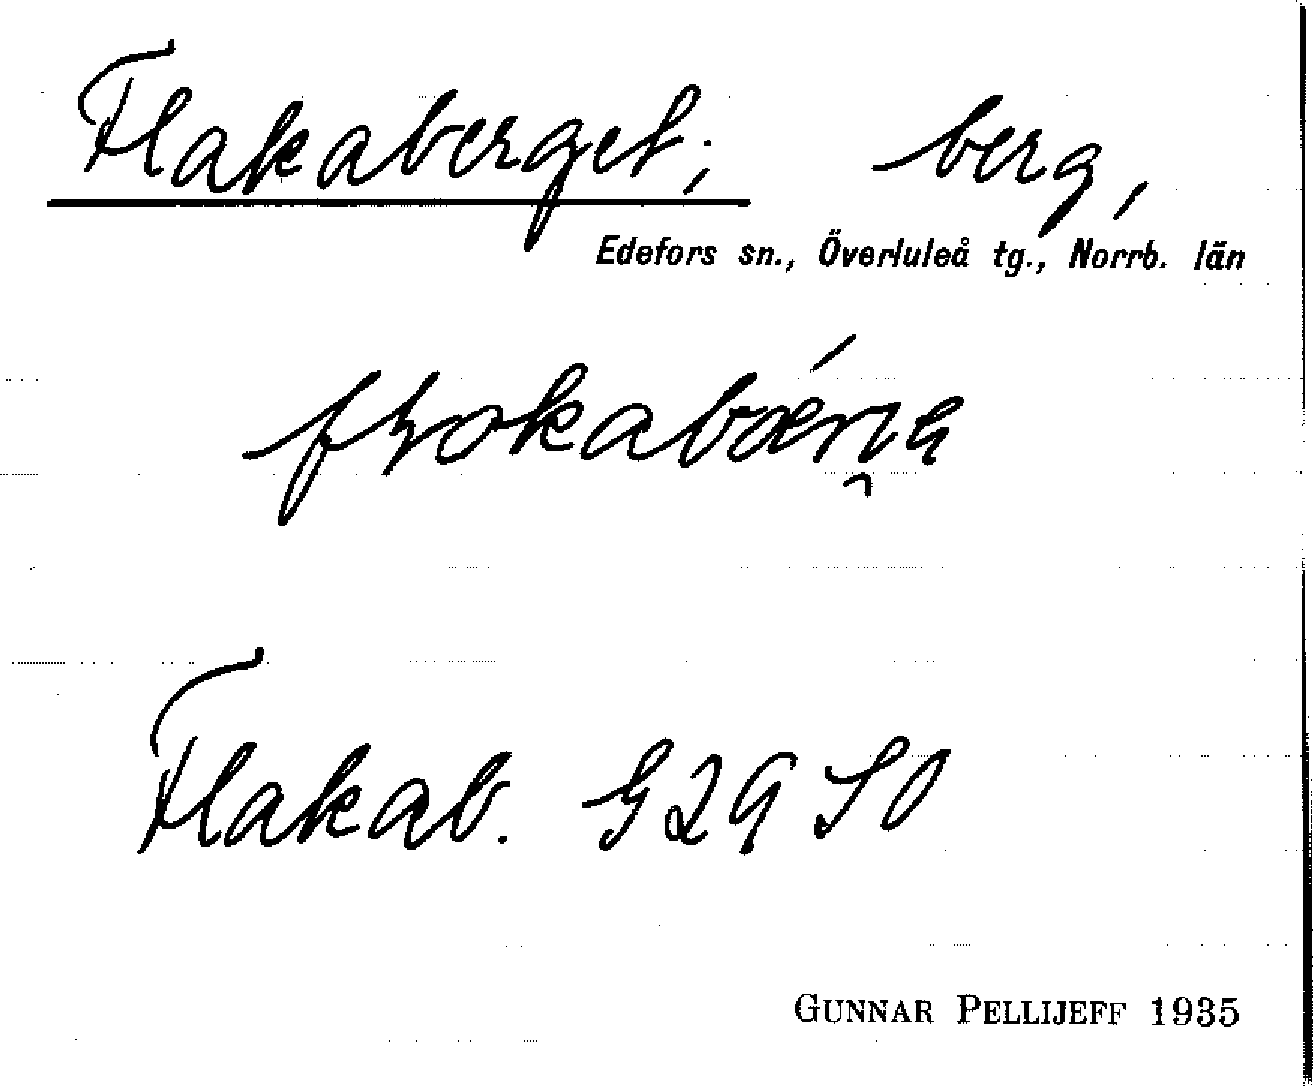 Flakaberget; berg,
Edefors sn., Överluleå tg., Norrb. län
Flakab. G29 SO
GUNNAR PELLIJEFF 1935